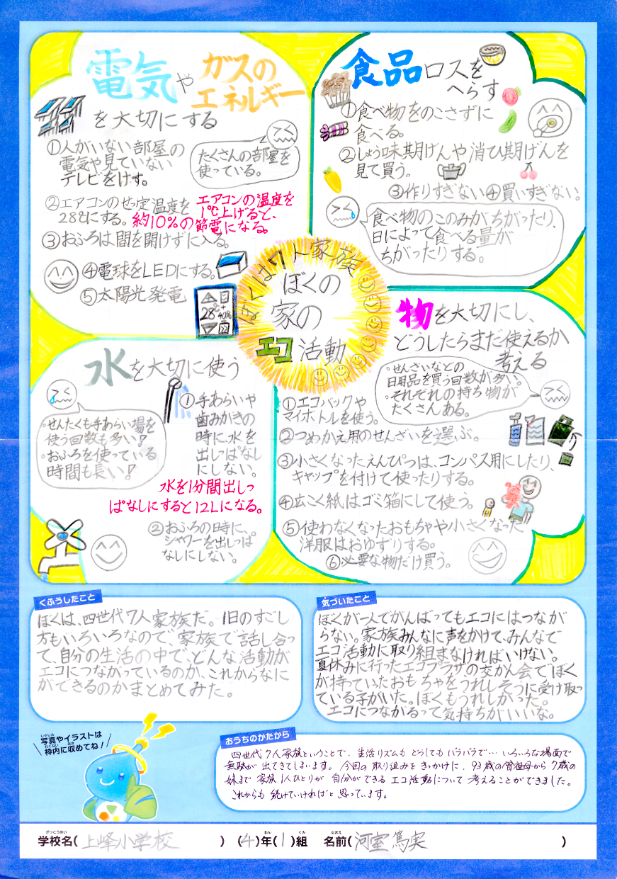 電気やガスの
エネルギー
を大切にする
①人がいない部屋の
電気や見ていない
テレビをけす。
たくさんの部屋を
使っている。
②エアコンのせっ定温度を
28℃にする。
エアコンの温度を
1℃上げると、
約10%の節電になる。
③おふろは間を開けずに入る。
④電球をLEDにする。
⑤太陽光発電
28℃
食品ロスを
へらす
①食べ物をのこさずに
食べる。
②しょう味期げんや消ひ期げんを
見て買う。
③作りすぎない④買いすぎない。
食べ物のこのみがちがったり、
日によって食べる量が
ちがったりする。
ぼくは7人家族
ぼくの
家の
エコ活動
水を大切に使う
・せんたくも手あらい場を
使う回数も多い!
・おふろを使っている
時間も長い!
①手あらいや
歯みがきの
時に水を
出しっぱなし
にしない。
水を1分間出しっ
ぱなしにすると12Lになる。
②おふろの時に。
シャワーを出しっぱ
なしにしない。
物を大切にし、
どうしたらまた使えるか
考える
・せんざいなどの
日用品を買う回数が多い。
・それぞれの持ち物が
たくさんある。
①エコバックや
マイボトルを使う。
②つめかえ用のせんざいを選ぶ。
③小さくなったえんぴつは、コンパス用にしたり、
キャップを付けて使ったりする。
④広こく紙はゴミ箱にして使う。
⑤使わなくなったおもちゃや小さくなった
洋服はおゆずりする。
⑥必要な物だけ買う。
くふうしたこと
ぼくは、四世代7人家族だ。1日のすごし
方もいろいろなので、家族で話し合っ
て、自分の生活の中で、どんな活動が
エコにつながっているのか、これからなに
ができるのかまとめてみた。
気づいたこと
ぼくが一人でがんばってもエコにはつながら
らない。家族みんなに声をかけて、みんなで
エコ活動に取り組まなければいけない。
夏休みに行ったエコプラザの交かん会でぼく
が持っていたおもちゃをうれしそうに受け取っ
ている子がいた。ぼくもうれしかった。
エコにつながるって気持ちがいいな。
写真やイラストは
枠内に収めてね!
おうちのかたから
四世代7人家族ということで、生活リズムもどうしてもバラバラで…いろいろな場面で
無駄が出てきてしまいます。今回の取り組みをきっかけに、93歳の曽祖母から7歳の
妹まで家族1人ひとりが自分ができるエコ活動について考えることができました。
これからも続けていければと思っています。
学校名(上峰小学校)(4)年(1)組 名前(河室篤実)